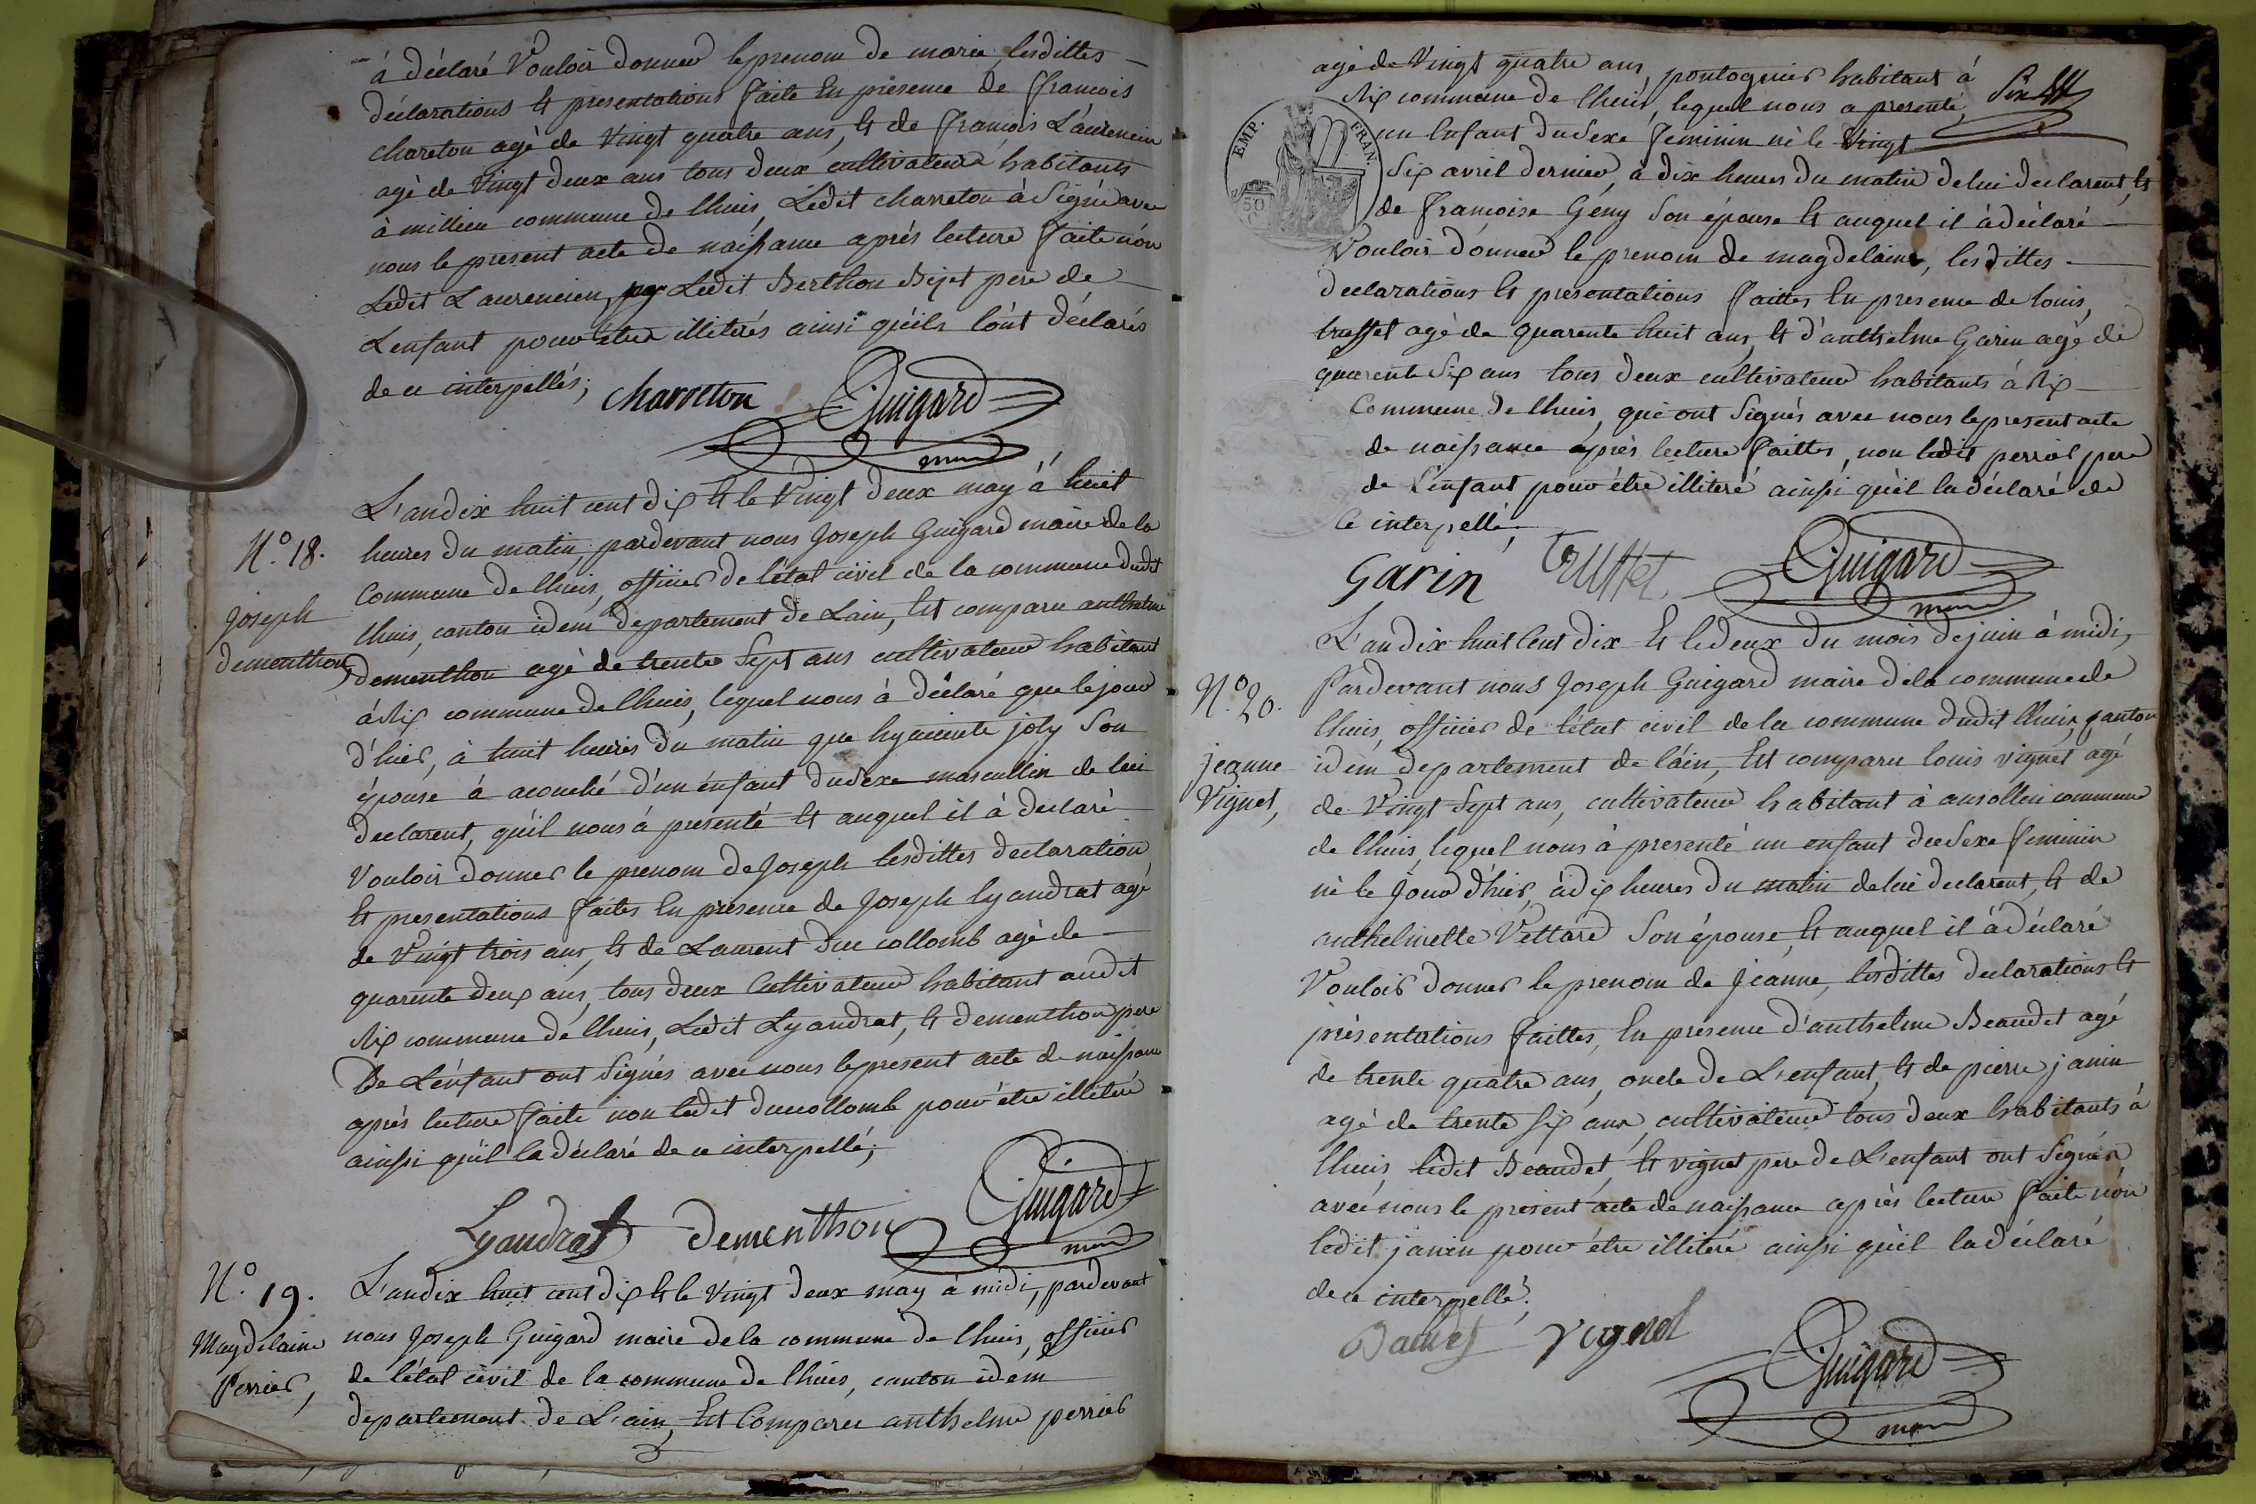 à déclaré vouloir donner le prenom de marie, lesdittes
déclarations & presentations faite En présence de francois
chareton agé de vingt quatre ans, & de françois Laurencin
agé de vingt deux ans tous deux cultivateur habitants
à millieu commune de lhuis, Ledit charreton à Signé avec
nous le present acte de naissance aprés lecture faite non
Ledit Laurencin, Ledit Berthon Bijet pere de
Lenfant pour être illiterés ainsi qu'ils l'ont déclarés
de ce interpellés;
charreton Guigard
maire
N.º 18.
joseph
dementhon,
L'an dix huit cent dix & le vingt deux may à huit
heures du matin, pardevant nous Joseph Guigard maire de la
Commune de lhuis, officier de l'état civil de la commune dudit
lhuis, canton idem departement de Lain, Est comparu anthelme
dementhon agé de trente Sept ans cultivateur habitant
à Rix commune de lhuis, lequel nous à déclaré que le jour
d'hier, à huit heures du matin que hyacinte joly Son
épouse à acouché d'un énfant du Sexe mascullin de lui
declarent, qu'il nous à presenté & auquel il à declaré
vouloir donner le prenom de Joseph lesdittes declaration
& presentations faites En presence de Joseph lyandrat agé
de vingt trois ans, & de Laurent Ducollomb agé de
quarente deux ans, tous deux Cultivateur habitant audit
Rix commune de lhuis, Ledit Lyandrat, & dementhon pere
De L'énfant ont Signés avec nous le present acte de naissance
aprés lecture faite non ledit ducollomb pour être illiteré
ainssi qu'il la déclaré de ce interpellé;
Lyandrat Dementhon Guigard
maire
N.º 19.
Magdelaine
Perrier,
L'an dix huit cent dix & le vingt deux may à midi, pardevant
nous Joseph Guigard maire de la commune de lhuis, officier
de l'état civil de la commune de lhuis, canton idem
departement de L'ain, Est Comparu anthelme perrier
agé de vingt quatre ans, pontognier habitant à
Rix commune de lhuis, lequel nous a presenté,
EMP. FRAN.
un Enfant du Sexe feminin né le vingt
Six avril dernier, à dix heures du matin de lui declarent, &
de françoise Gény Son épouse & auquel il à déclaré
vouloir donner le prenom de magdelaine, lesdittes
declarations & presentations faittes En presence de louis,
trusset agé de quarente huit ans, & d'anthelme Garin agé de
quarente Six ans tous deux cultivateur habitants à Rix
Commune de lhuis, qui ont Signés avec nous le present acte
de naissance aprés lecture faittes, non ledit perrier pere
de l'énfant pour être illiteré ainssi qu'il la déclaré de
ce interpellé;
Garin Trusset Guigard
maire
N.º 20.
jeanne
Vignet,
L'an dix huit Cent dix & le deux du mois de juin à midi,
Pardevant nous Joseph Guigard maire de la commune de
lhuis, officier de l'état civil de la commune dudit lhuis, canton
idem departement de l'ain, Est comparu louis vignet agé
de vingt Sept ans, cultivateur habitant à ansollein commune
de lhuis, lequel nous à presenté un enfant du Sexe feminin
né le jour d'hier, à dix heures du matin de lui declarent, & de
anthelmette Vettard Son épouse, & auquel il à déclaré
vouloir donner le prenom de jeanne, lesdittes declarations &
présentations faittes, En presence d'anthelme Beaudet agé
de trente quatre ans, oncle de L'enfant, & de pierre janin
agé de trente Six ans, cultivateur tous deux habitants à
lhuis, ledit Beaudet, & vignet pere de L'enfant ont Signés
avec nous le present acte de naissance aprés lecture faite non
ledit janin pour être illiteré ainssi qu'il la déclaré
de ce interpellé;
Baudet Vignet Guigard
maire